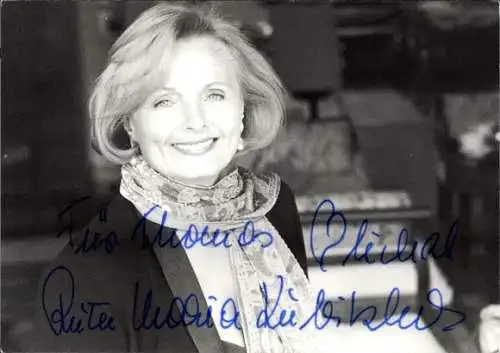 Für Thomas Michal
Ruth Maria Kubitschek